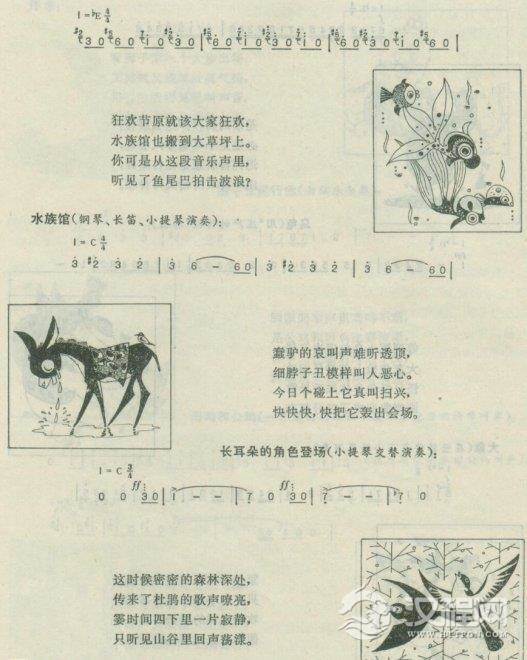 1=♭E 4/4
狂欢节原就该大家狂欢，
水族馆也搬到大草坪上。
你可是从这段音乐声里，
听见了鱼尾巴拍击波浪？
水族馆（钢琴、长笛、小提琴演奏）：
1=C 4/4
3 ♯2 3 2 | 3 6 － 60 | 3 ♯2 3 2 | 3 6 － 60 |
蠢驴的哀叫声难听透顶，
细脖子丑模样叫人恶心。
今日个碰上它真叫扫兴，
快快快，快把它轰出会场。
长耳朵的角色登场（小提琴交替演奏）：
1=C 3/4
0 0 ff 30 | 7 － － | 7 0 ff 30 | 7 － － | 7 0
这时候密密的森林深处，
传来了杜鹃的歌声嘹亮，
霎时间四下里一片寂静，
只听见山谷里回声荡漾。